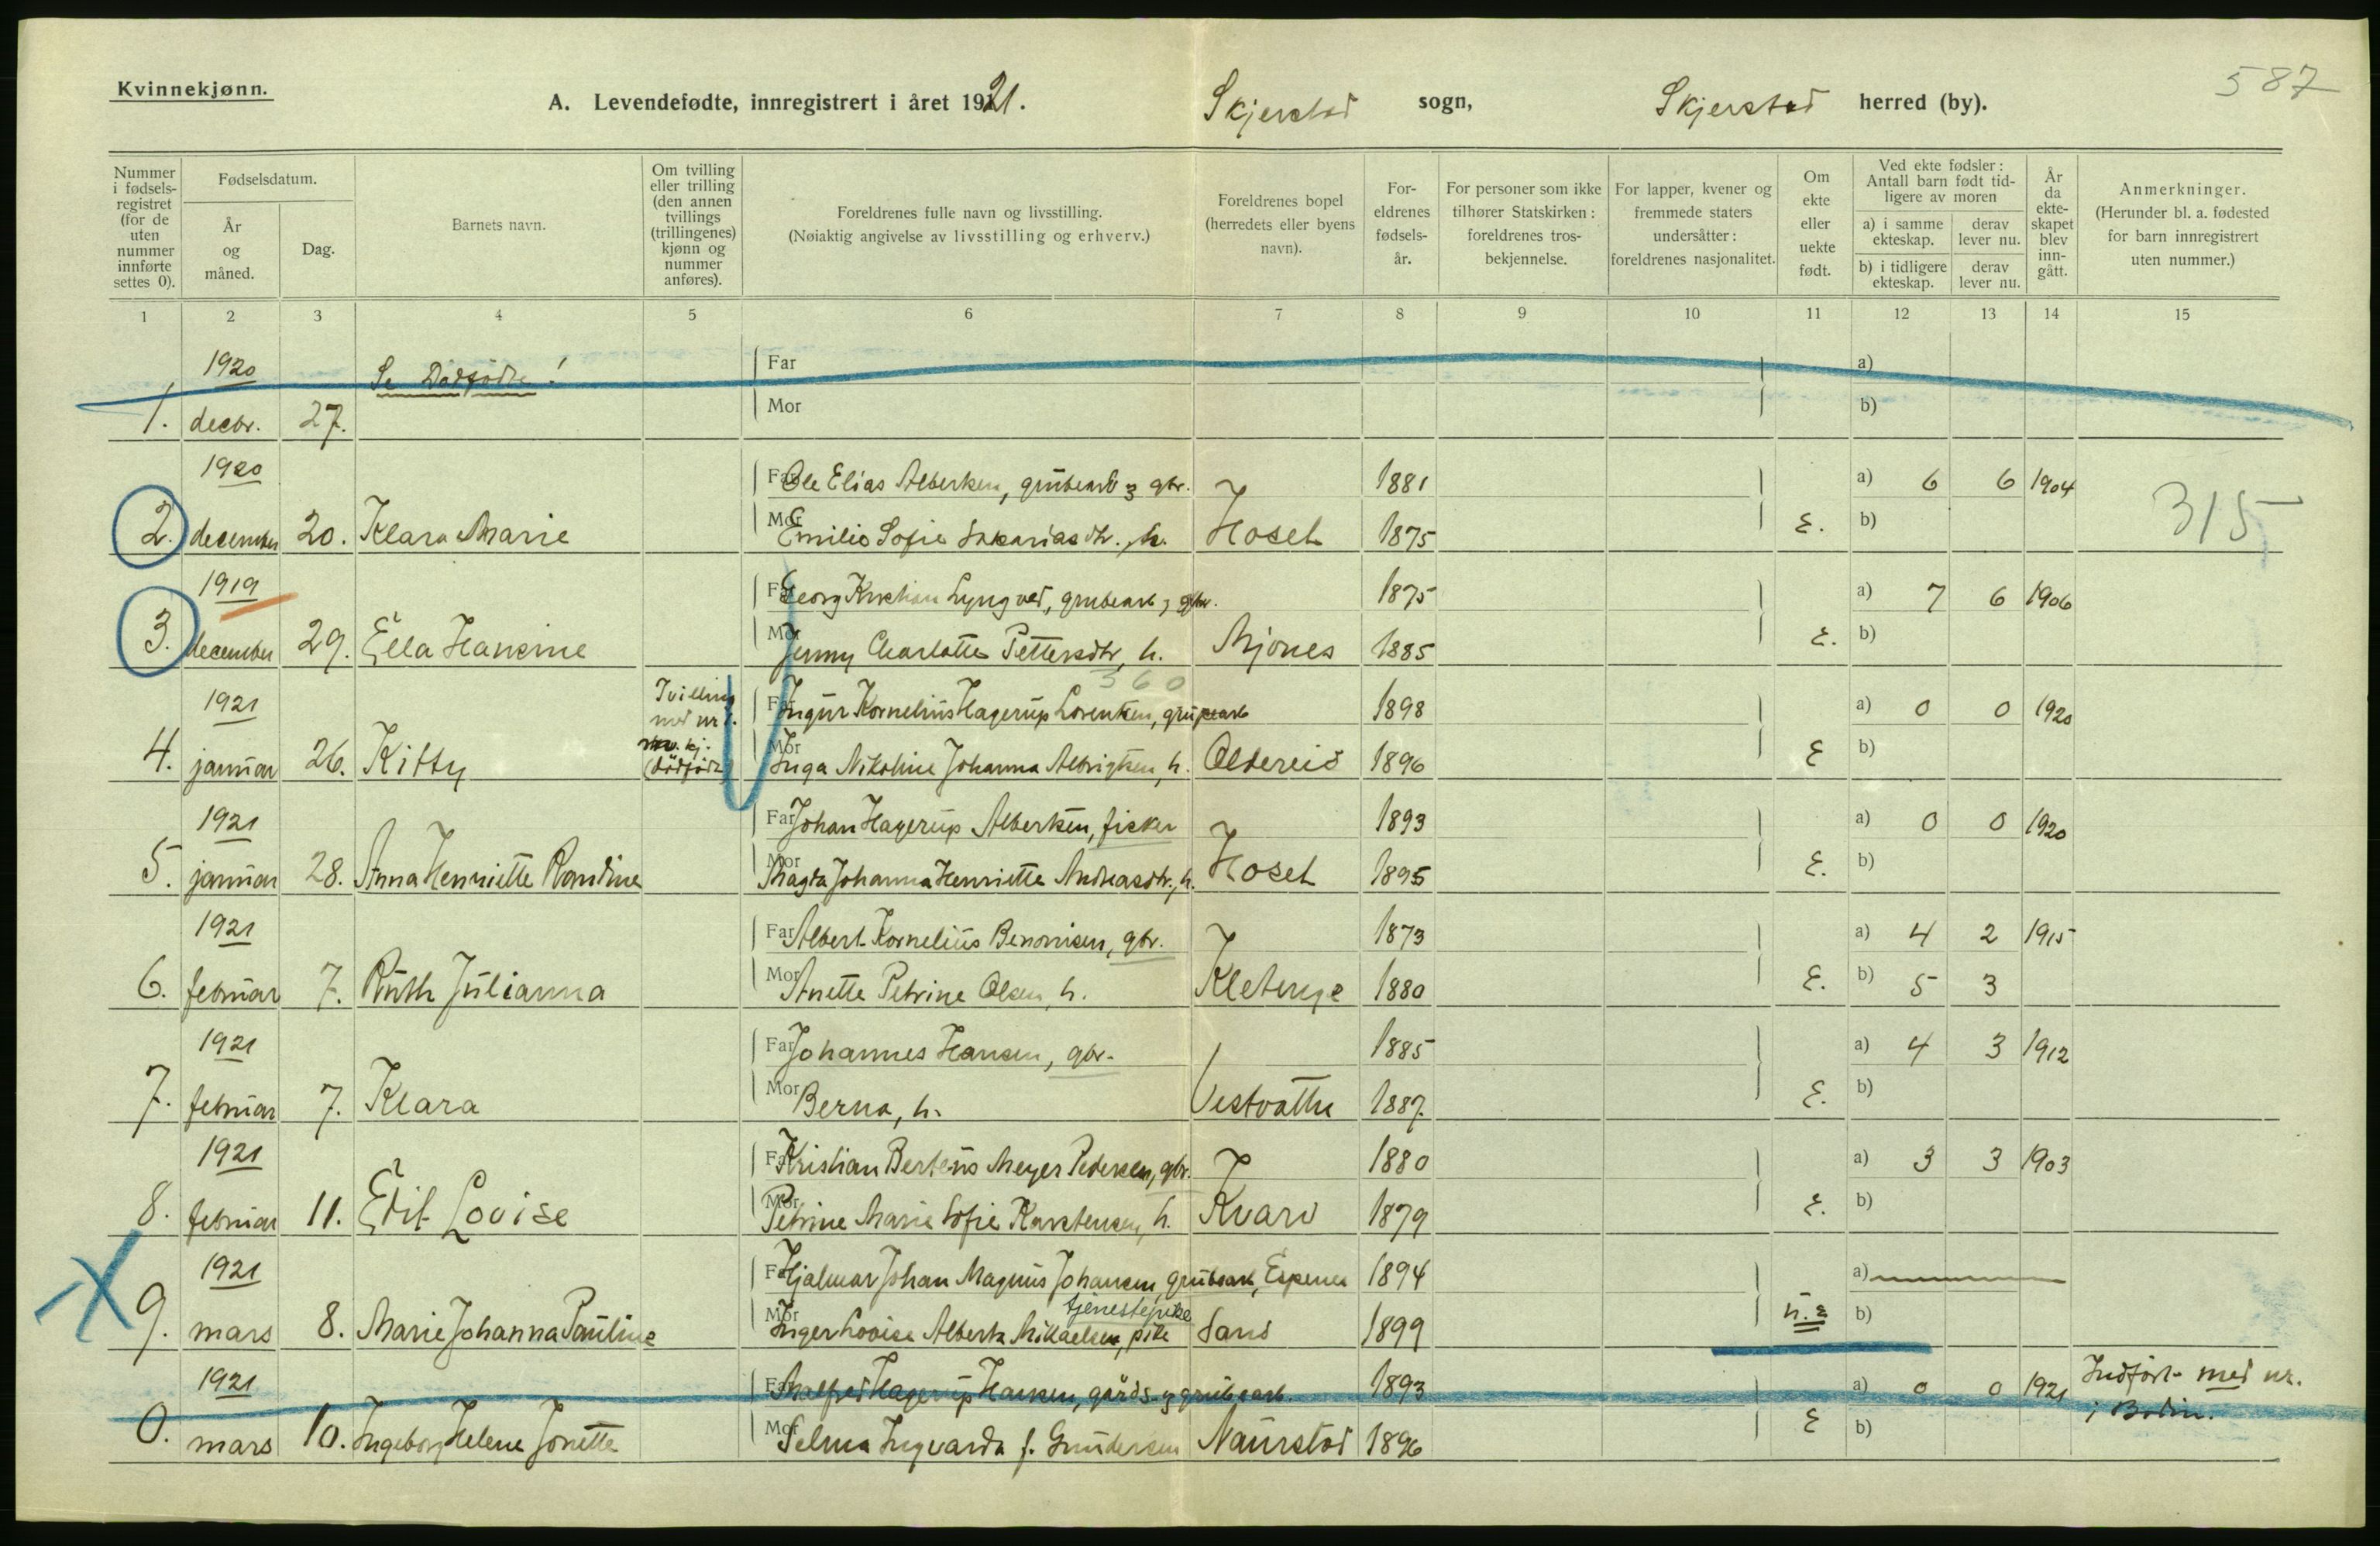 Kvinnekjønn.
587
A. Levendefødte, innregistrert i året 1921. Skjerstad sogn, Skjerstad herred (by).
Nummer i fødsels-registret (for de uten nummer innførte settes 0).
Fødselsdatum.
År og måned.
Dag.
Barnets navn.
Om tvilling eller trilling (den annen tvillings (trillingenes) kjønn og nummer anføres).
Foreldrenes fulle navn og livsstilling.
(Nøiaktig angivelse av livsstilling og erhverv.)
Foreldrenes bopel (herredets eller byens navn).
For-eldrenes fødsels-år.
For personer som ikke tilhører Statskirken: foreldrenes tros-bekjennelse.
For lapper, kvener og fremmede staters undersåtter: foreldrenes nasjonalitet.
Om ekte eller uekte født.
Ved ekte fødsler: Antall barn født tid-ligere av moren
a) i samme ekteskap. derav lever nu.
b) i tidligere ekteskap. derav lever nu.
År da ekte-skapet blev inn-gått.
Anmerkninger.
(Herunder bl. a. fødested for barn innregistrert uten nummer.)
1 2 3 4 5 6 7 8 9 10 11 12 13 14 15
1920 Se Dødfødte! Far a)
1. decbr. 27. Mor b)
1920 Far Ole Elias Albertsen, grubearb. & gbr. 1881 a) 6 6 1904
2. december 20. Klara Marie Mor Emilie Sofie Sakariasdtr., h. Hoset 1875 E. b) 315
1919 Far Georg Kristian Lyngved, grubearb. & gbr. 1875 a) 7 6 1906
3. december 29. Ella Hansine Mor Jenny Charlotte Pettersdtr, h. Mjønes 1885 E. b)
360
1921 Tvilling med nr 1. Far Ingvr Kornelius Hagerup Lorentsen, grubearb 1898 a) 0 0 1920
4. januar 26. Kitty kj. (dødfødt) Mor Inga Nikoline Johanna Albrigtsen, h. Oldereid 1896 E b)
1921 Far Johan Hagerup Albertsen, fisker 1893 a) 0 0 1920
5. januar 28. Anna Henriette Randine Mor Magda Johanna Henriette Andreasdtr., h. Hoset 1895 E. b)
1921 Far Albert Kornelius Benonisen, gbr. 1873 a) 4 2 1915
6. februar 7. Ruth Julianna Mor Anette Petrine Olsen, h. Kletenge 1880 E. b) 5 3
1921 Far Johannes Hansen, gbr. 1885 a) 4 3 1912
7. februar 7. Klara Mor Berna, h. Vestvatn 1887. E. b)
1921 Far Kristian Berteus Meyer Pedersen, gbr. 1880 a) 3 3 1903
8. februar 11. Edit Lovise Mor Petrine Marie Sofie Karstensen, h. Kvarv 1879 E. b)
1921 Far Hjalmar Johan Magnus Johansen, grubearb, Espenes 1894 a)
tjenestepike
9. mars 8. Marie Johanna Pauline Mor Inger Lovise Alberta Mikaelsen, pike Sand 1899 u. e b)
1921 Far Malfred Hagerup Hansen, gårds- & grubearb. 1893 a) 0 0 1921 Indført med nr. i Bodin.
0. mars 10. Ingeborg Helene Jonette Mor Selma Ingvarda f. Gundersen Naurstad 1896 E b)